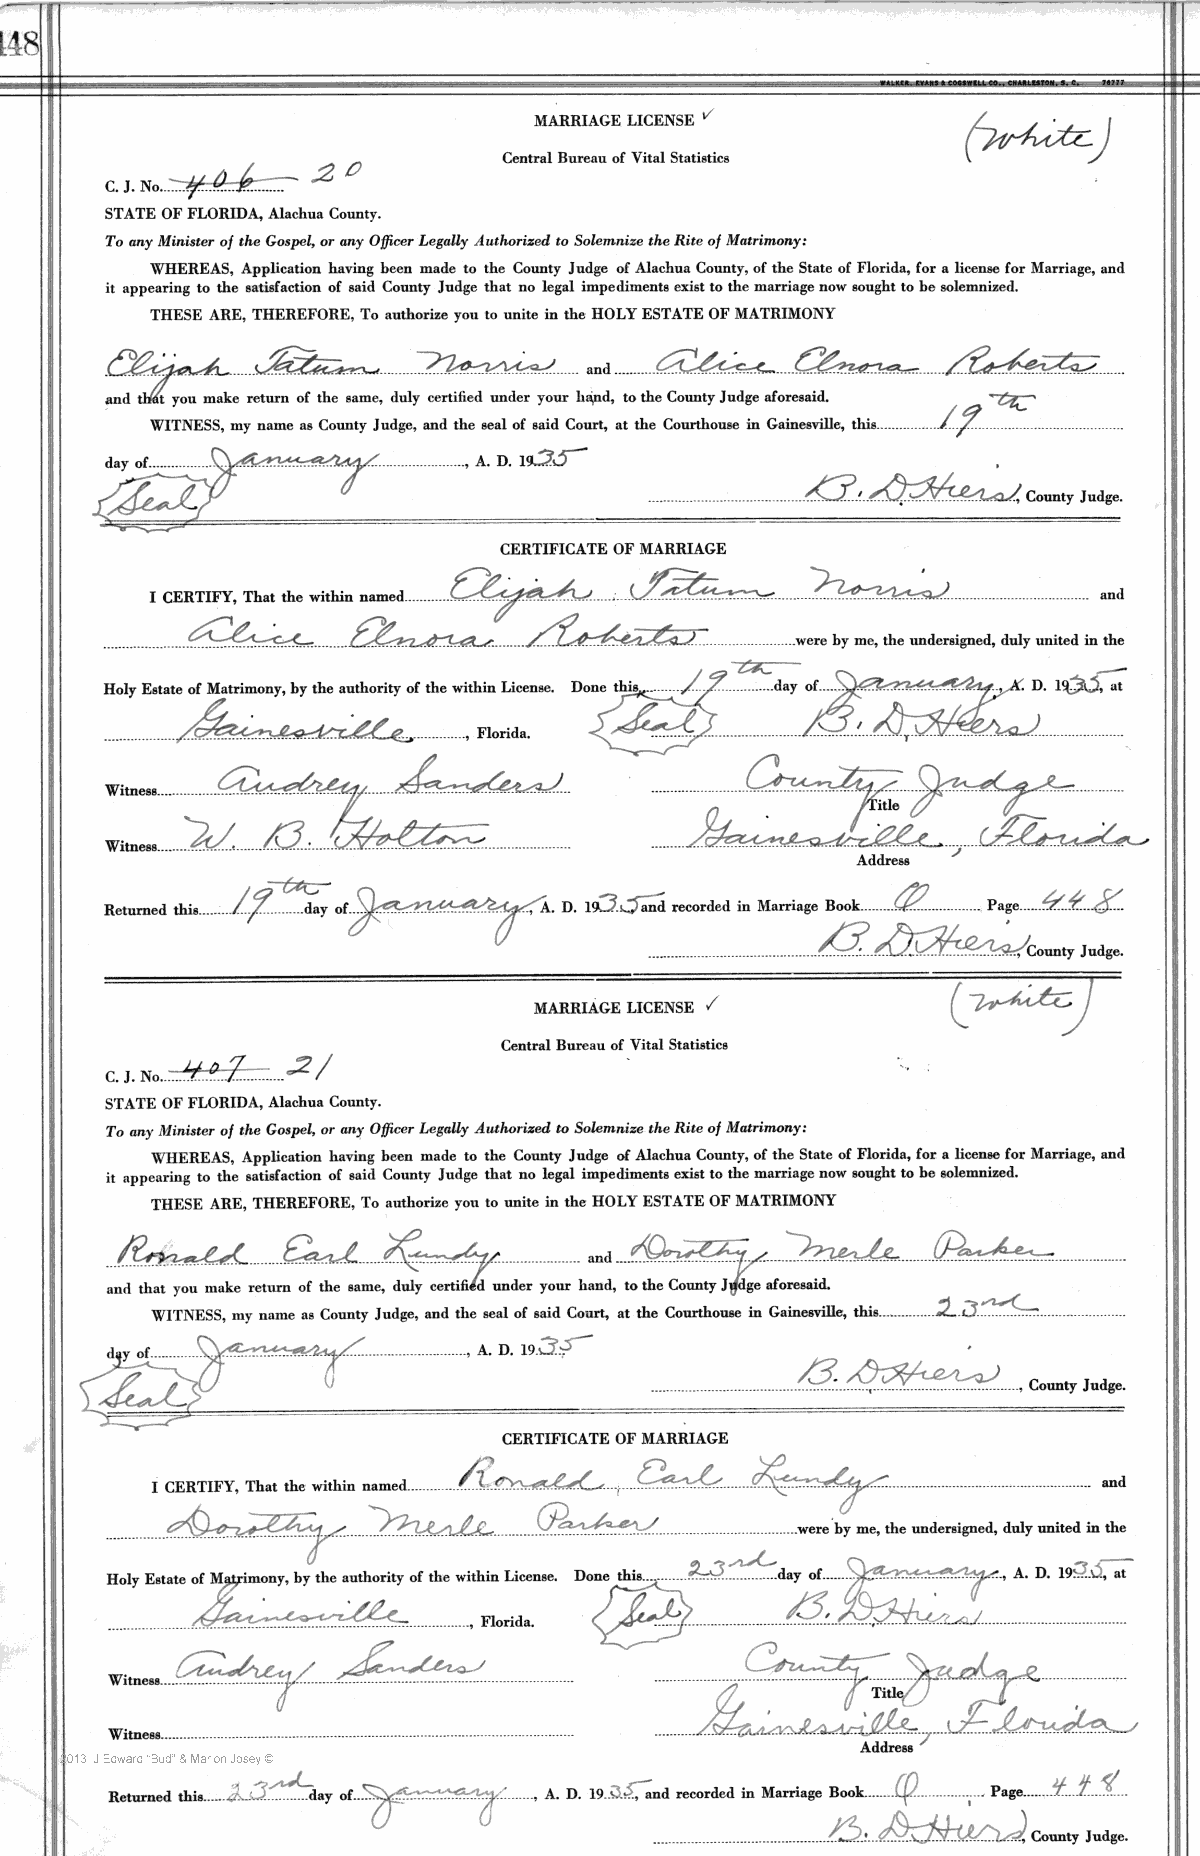 448
WALKER, EVANS & COGSWELL CO., CHARLESTON, S. C. 76777
MARRIAGE LICENSE ✓
(White)
Central Bureau of Vital Statistics
C. J. No. 406 20
STATE OF FLORIDA, Alachua County.
To any Minister of the Gospel, or any Officer Legally Authorized to Solemnize the Rite of Matrimony:
WHEREAS, Application having been made to the County Judge of Alachua County, of the State of Florida, for a license for Marriage, and
it appearing to the satisfaction of said County Judge that no legal impediments exist to the marriage now sought to be solemnized.
THESE ARE, THEREFORE, To authorize you to unite in the HOLY ESTATE OF MATRIMONY
Elijah Tatum Norris and Alice Elnora Roberts
and that you make return of the same, duly certified under your hand, to the County Judge aforesaid.
WITNESS, my name as County Judge, and the seal of said Court, at the Courthouse in Gainesville, this 19th
day of January, A. D. 1935
Seal B. D. Hiers, County Judge.
CERTIFICATE OF MARRIAGE
I CERTIFY, That the within named Elijah Tatum Norris and
Alice Elnora Roberts were by me, the undersigned, duly united in the
Holy Estate of Matrimony, by the authority of the within License. Done this 19th day of January, A. D. 1935, at
Gainesville, Florida. Seal B. D. Hiers
Witness Audrey Sanders County Judge
Title
Witness W. B. Holton Gainesville, Florida
Address
Returned this 19th day of January, A. D. 1935, and recorded in Marriage Book O Page 448
B. D. Hiers, County Judge.
MARRIAGE LICENSE ✓
(White)
Central Bureau of Vital Statistics
C. J. No. 407 21
STATE OF FLORIDA, Alachua County.
To any Minister of the Gospel, or any Officer Legally Authorized to Solemnize the Rite of Matrimony:
WHEREAS, Application having been made to the County Judge of Alachua County, of the State of Florida, for a license for Marriage, and
it appearing to the satisfaction of said County Judge that no legal impediments exist to the marriage now sought to be solemnized.
THESE ARE, THEREFORE, To authorize you to unite in the HOLY ESTATE OF MATRIMONY
Ronald Earl Lundy and Dorothy Merle Parker
and that you make return of the same, duly certified under your hand, to the County Judge aforesaid.
WITNESS, my name as County Judge, and the seal of said Court, at the Courthouse in Gainesville, this 23rd
day of January, A. D. 1935
Seal B. D. Hiers, County Judge.
CERTIFICATE OF MARRIAGE
I CERTIFY, That the within named Ronald Earl Lundy and
Dorothy Merle Parker were by me, the undersigned, duly united in the
Holy Estate of Matrimony, by the authority of the within License. Done this 23rd day of January, A. D. 1935, at
Gainesville, Florida. Seal B. D. Hiers
Witness Audrey Sanders County Judge
Title
Witness Gainesville, Florida
Address
2013 J Edward "Bud" & Marion Josey ©
Returned this 23rd day of January, A. D. 1935, and recorded in Marriage Book O Page 448
B. D. Hiers, County Judge.